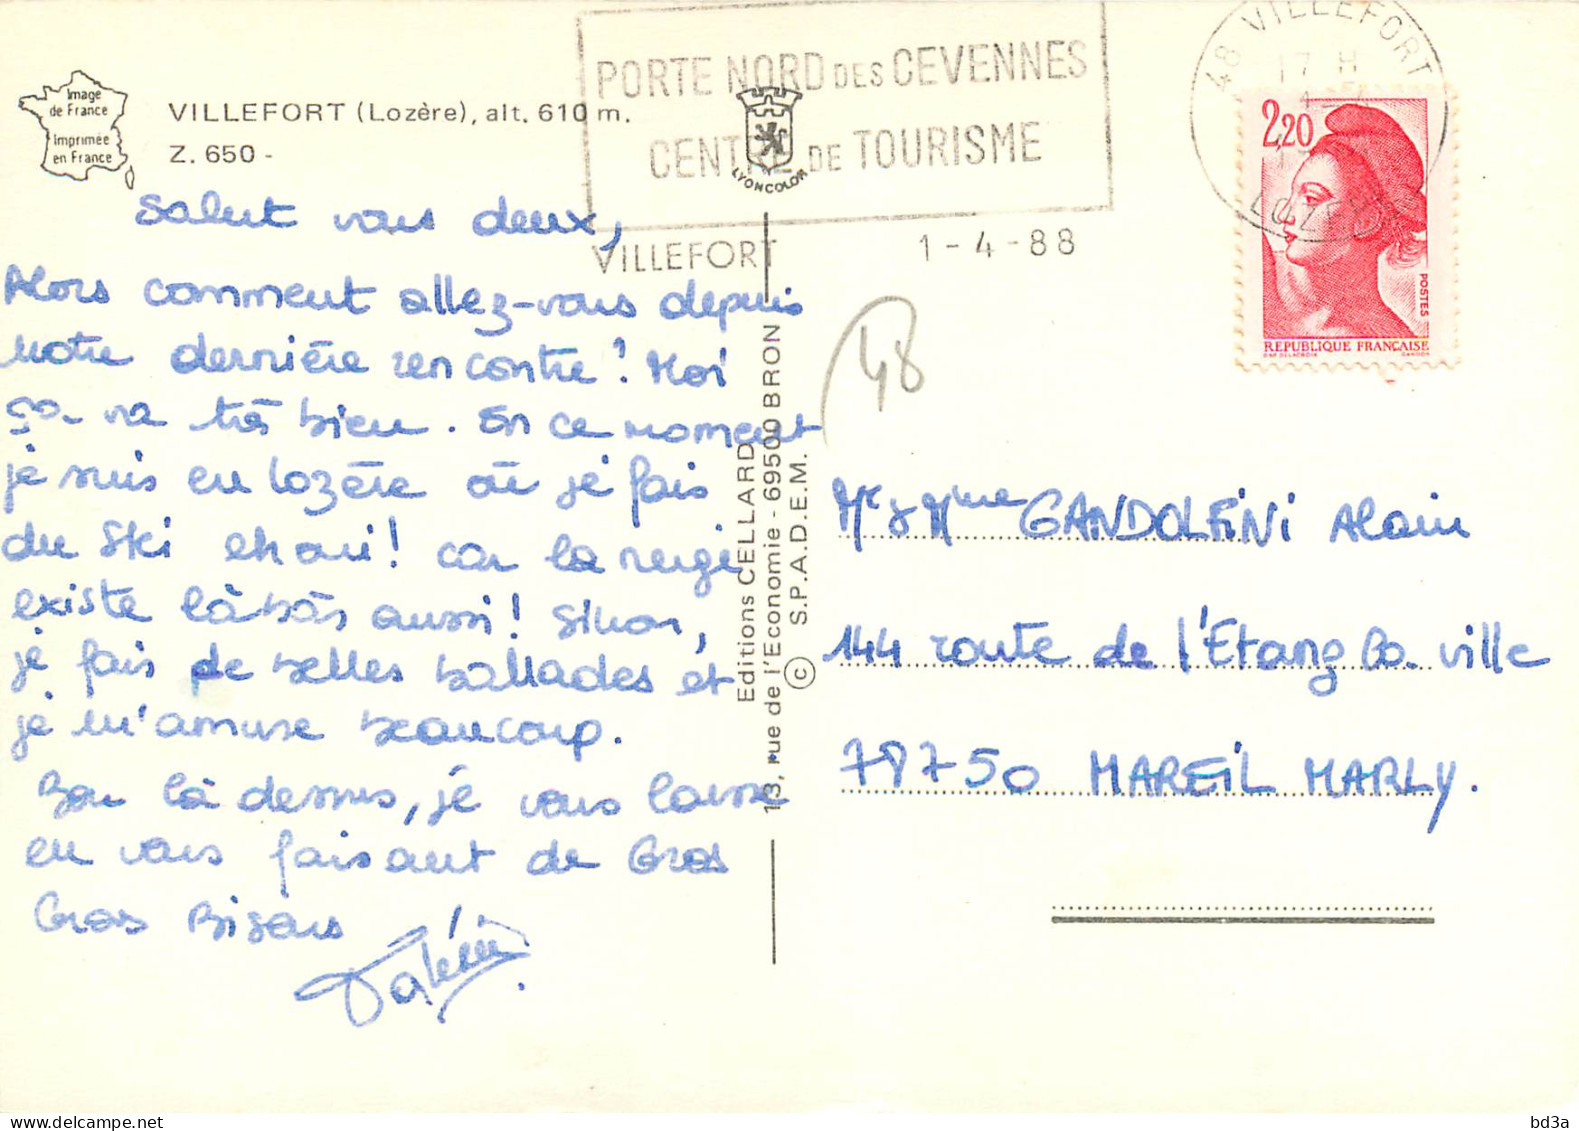 PORTE NORD DES CEVENNES
CENTRE DE TOURISME
VILLEFORT 1-4-88
48 VILLEFORT
17 H
LOZERE
2,20
POSTES
REPUBLIQUE FRANÇAISE
Image
de France
Imprimée
en France
VILLEFORT (Lozère), alt. 610 m.
Z. 650 -
LYONCOLOR
Salut vous deux,
Alors comment allez-vous depuis
notre dernière rencontre? Moi
ça va très bien. En ce moment
je suis en Lozère où je fais
du Ski eh oui! car la neige
existe làbàs aussi! Sinon,
je fais de belles ballades et
je m'amuse beaucoup.
Bon là dessus, je vous laisse
en vous faisant de Gros
Gros Bisous
Editions CELLARD
13, rue de l'Economie - 69500 BRON
© S.P.A.D.E.M.
48
Mr & Mme GANDOLFINI Alain
144 route de l'Etang La ville
78750 MAREIL MARLY.
bd3a